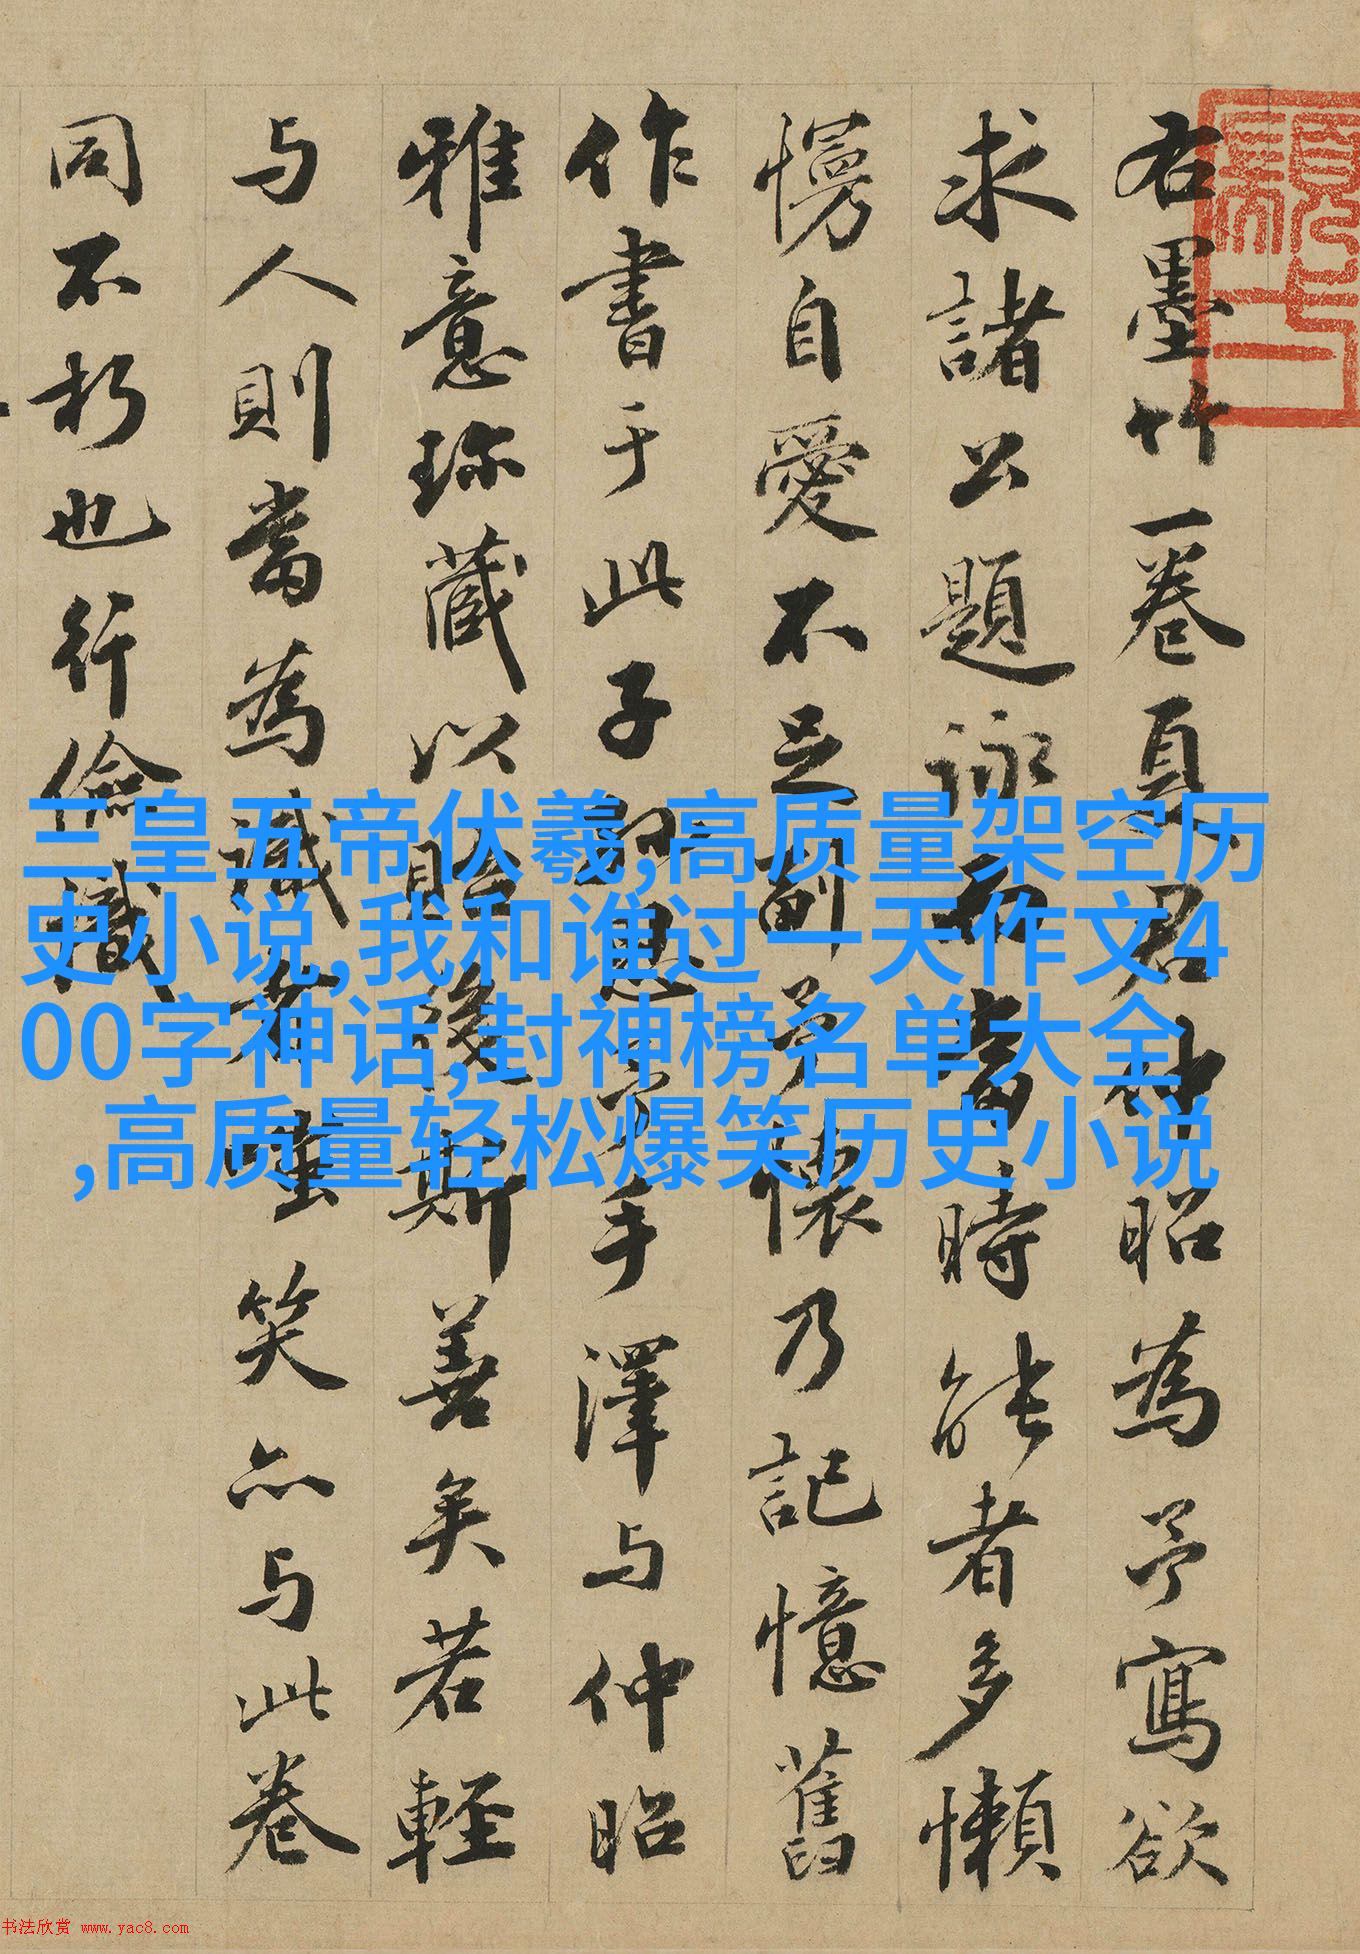 右墨竹一卷夏君仲昭為予寫欲
求諸公題詠而當時能者多懶
慢自愛不足副予懷乃記憶舊
作書于此子思手澤与仲昭
雅意珎藏以貽後斯善矣若輕
与人則當為識者嗤笑亦与此卷
同不朽也行儉識
三皇五帝伏羲,高质量架空历
史小说,我和谁过一天作文4
00字神话,封神榜名单大全
,高质量轻松爆笑历史小说
书法欣赏 www.yac8.com